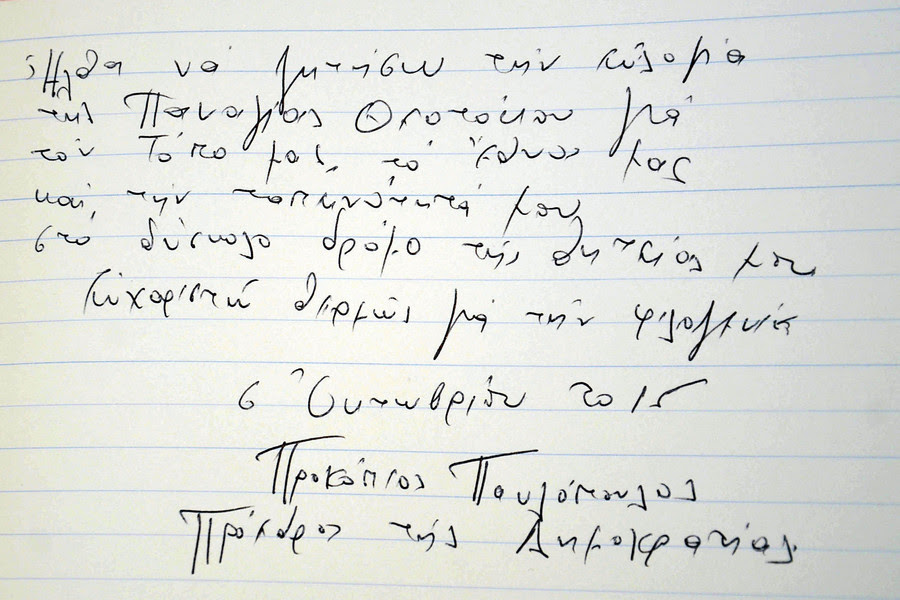 Ἦλθα νά ζητήσω τήν εὐλογία
τῆς Παναγίας Θεοτόκου γιά
τόν Τόπο μας, τό Ἔθνος μας
καί, τήν ταπεινότητά μου,
στό δύσκολο δρόμο τῆς θητείας μου.
Εὐχαριστῶ θερμῶς γιά τήν φιλοξενία
6 Ὀκτωβρίου 2015
Προκόπιος Παυλόπουλος
Πρόεδρος τῆς Δημοκρατίας.